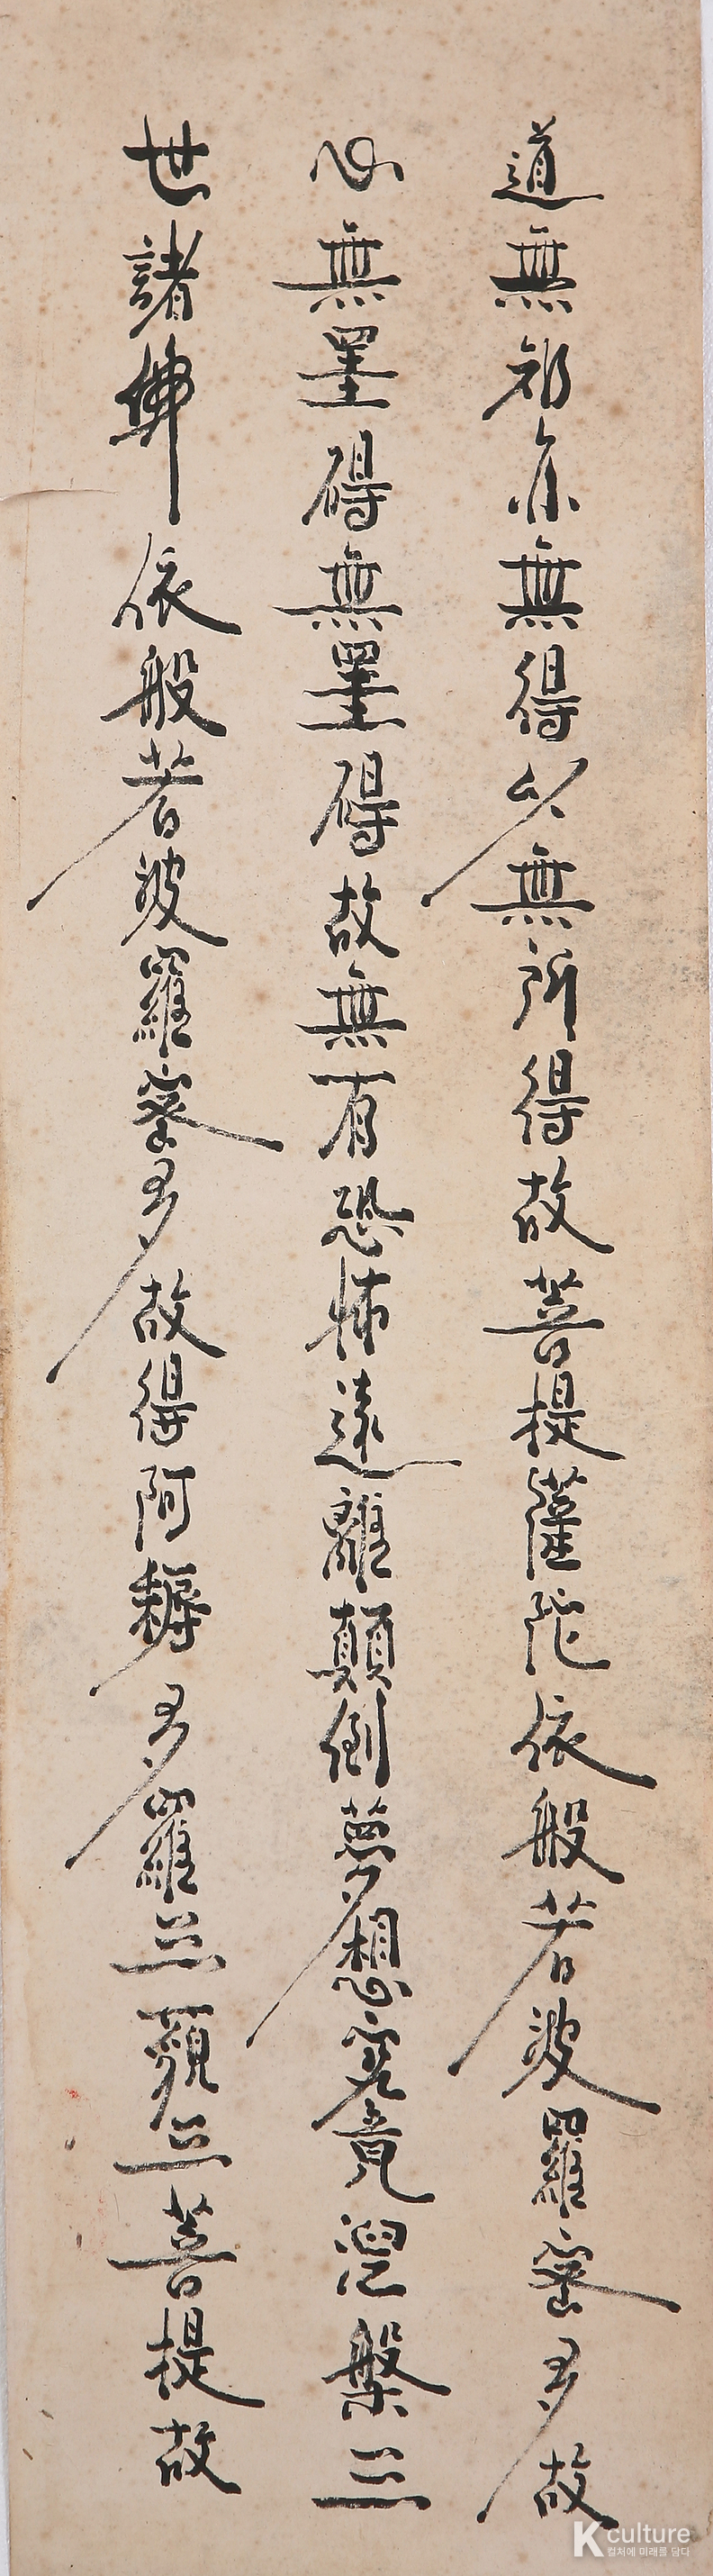 道無智亦無得以無所得故菩提薩陀依般若波羅密多故
心無罣碍無罣碍故無有恐怖遠離顚倒夢想究竟涅槃三
世諸佛依般若波羅密多故得阿耨多羅三藐三菩提故
K culture
컬처에 미래를 담다